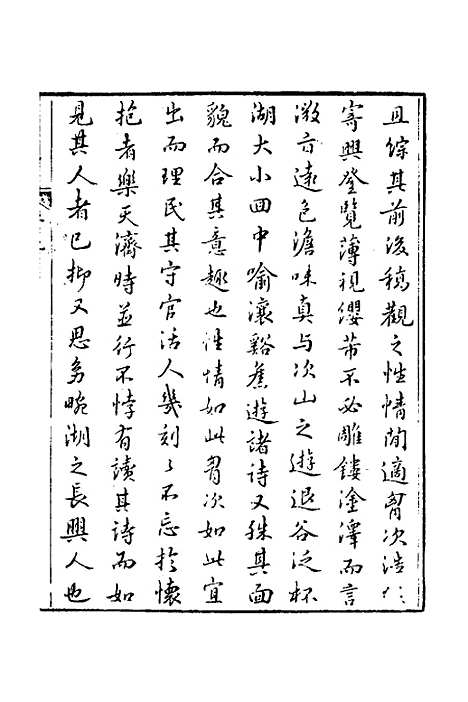 且綜其前後稿觀之性情閒適胸次浩
寄興登覽薄視纓芾不必雕鏤塗澤而言
激音遠色澹味真与次山之遊退谷泛杯
湖大小回中喻瀼谿蕉遊諸诗又殊其面
貌而合其意趣也性情如此胸次如此宜
出而理民其守官活人幾刻々不忘於懷
抱者樂天濟時並行不悖有讀其诗而如
見其人者已抑又思多畹湖之長興人也